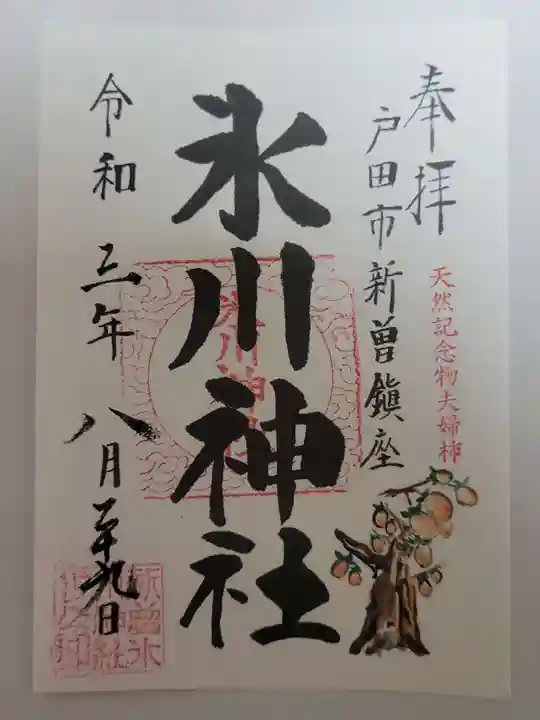 奉拝
戸田市新曽鎮座
天然記念物夫婦柿
氷川神社
氷川神社
令和三年八月二十九日